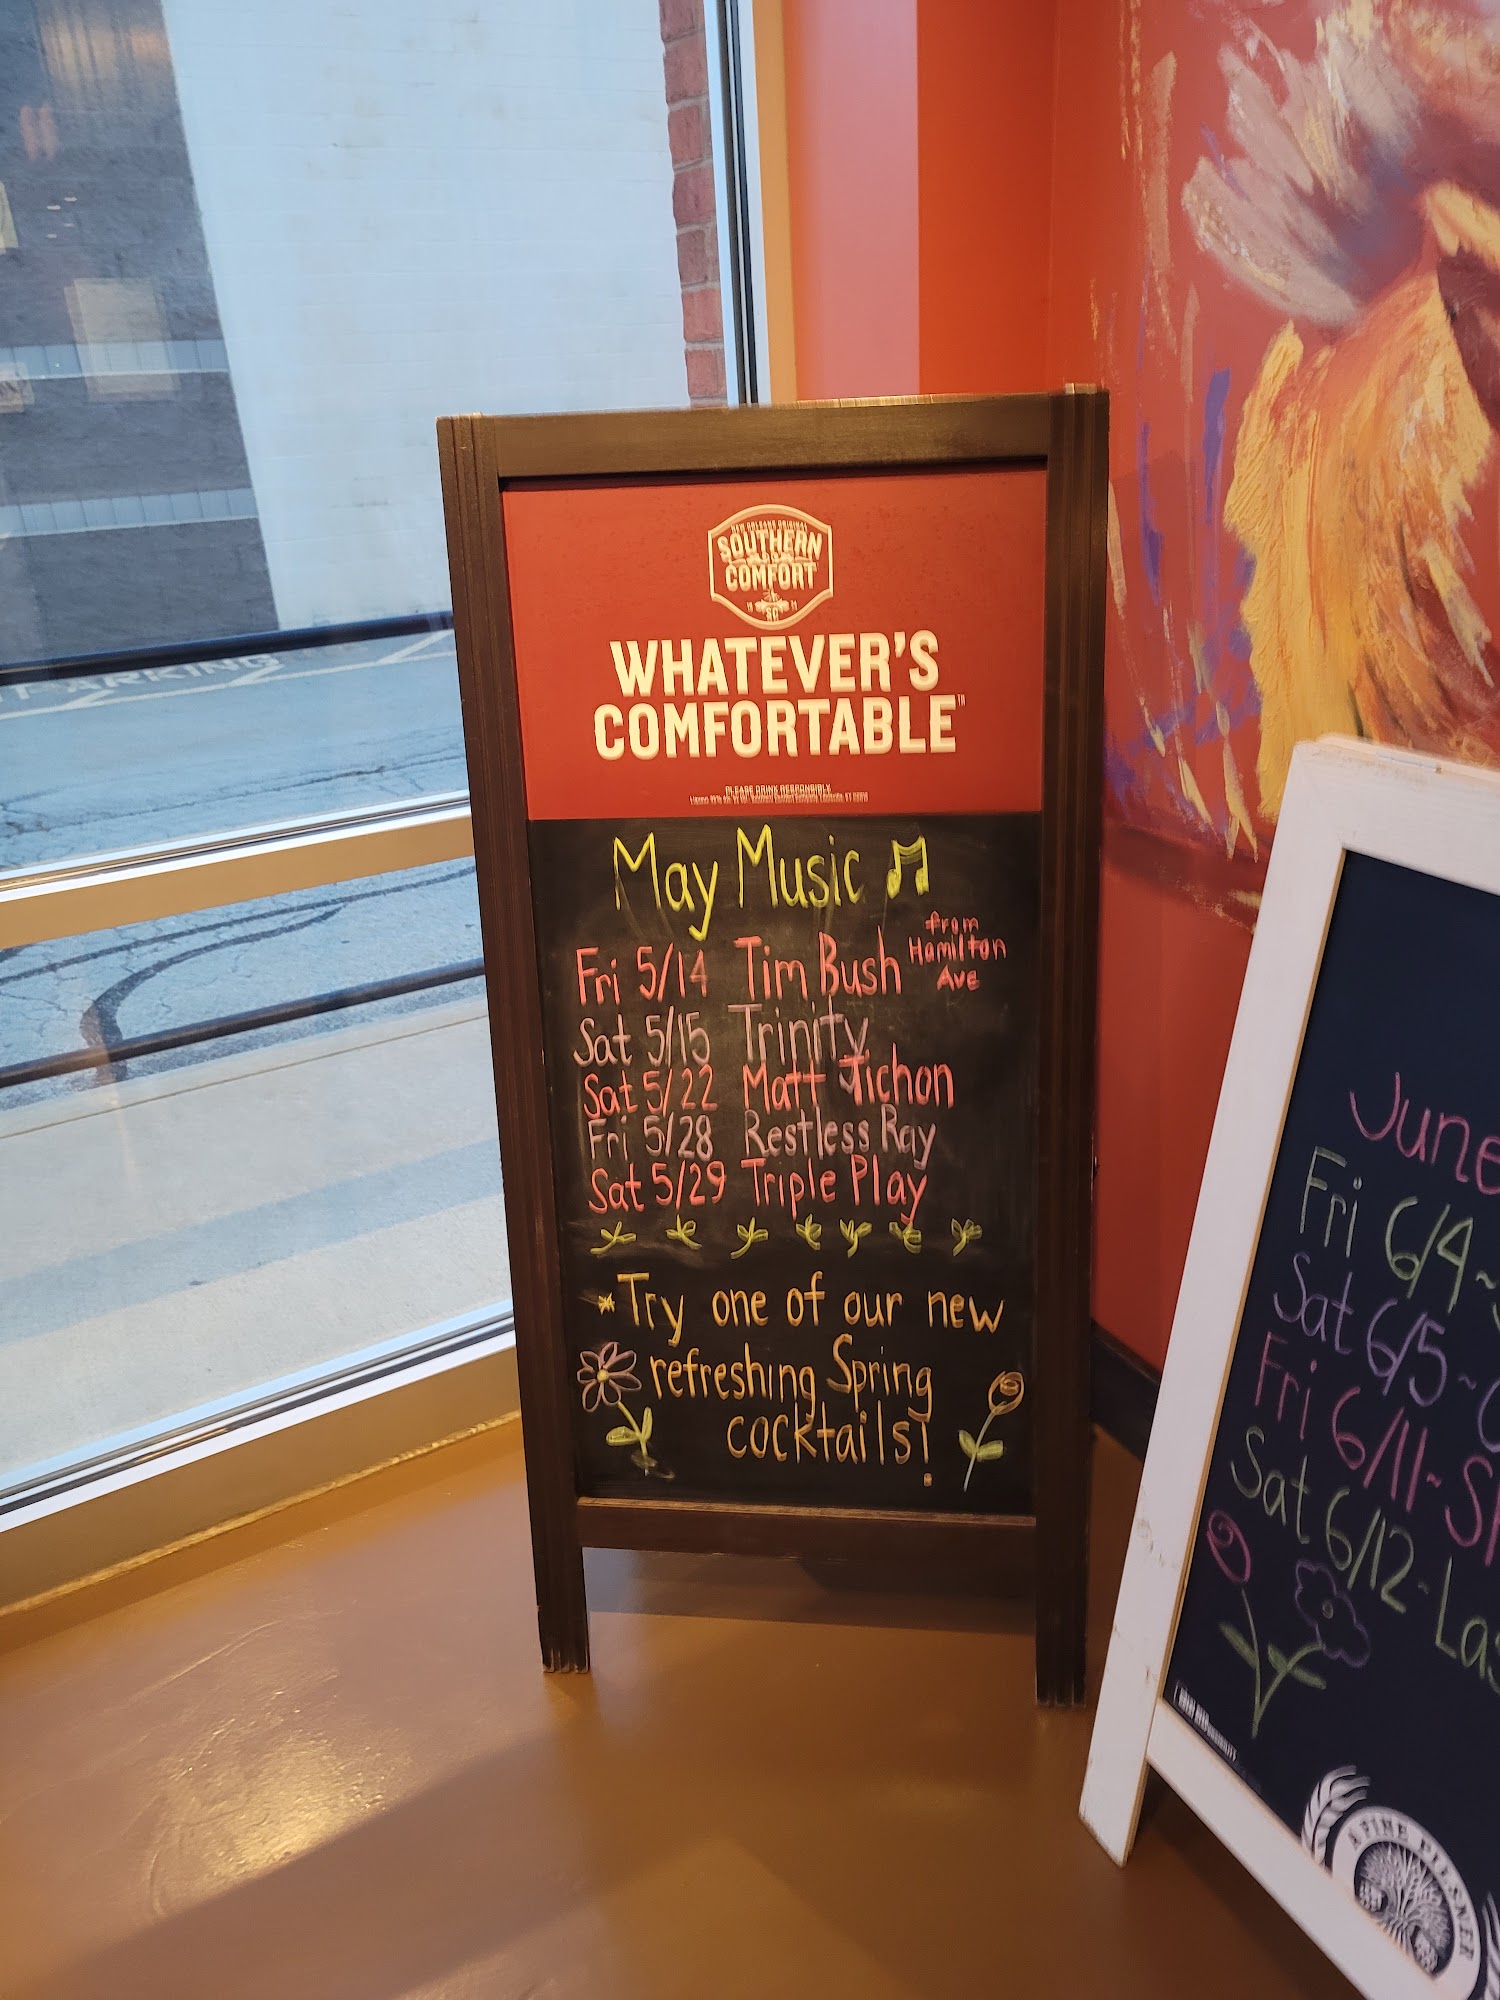 NEW ORLEANS ORIGINAL
SOUTHERN
COMFORT
WHATEVER'S
COMFORTABLE™
PLEASE DRINK RESPONSIBLY.
May Music
Fri 5/14 Tim Bush from Hamilton Ave
Sat 5/15 Trinity
Sat 5/22 Matt Tichon
Fri 5/28 Restless Ray
Sat 5/29 Triple Play
Try one of our new
refreshing Spring
cocktails!
June
Fri 6/4~
Sat 6/5~
Fri 6/11~
Sat 6/12~
A FINE PILSNER
PARKING